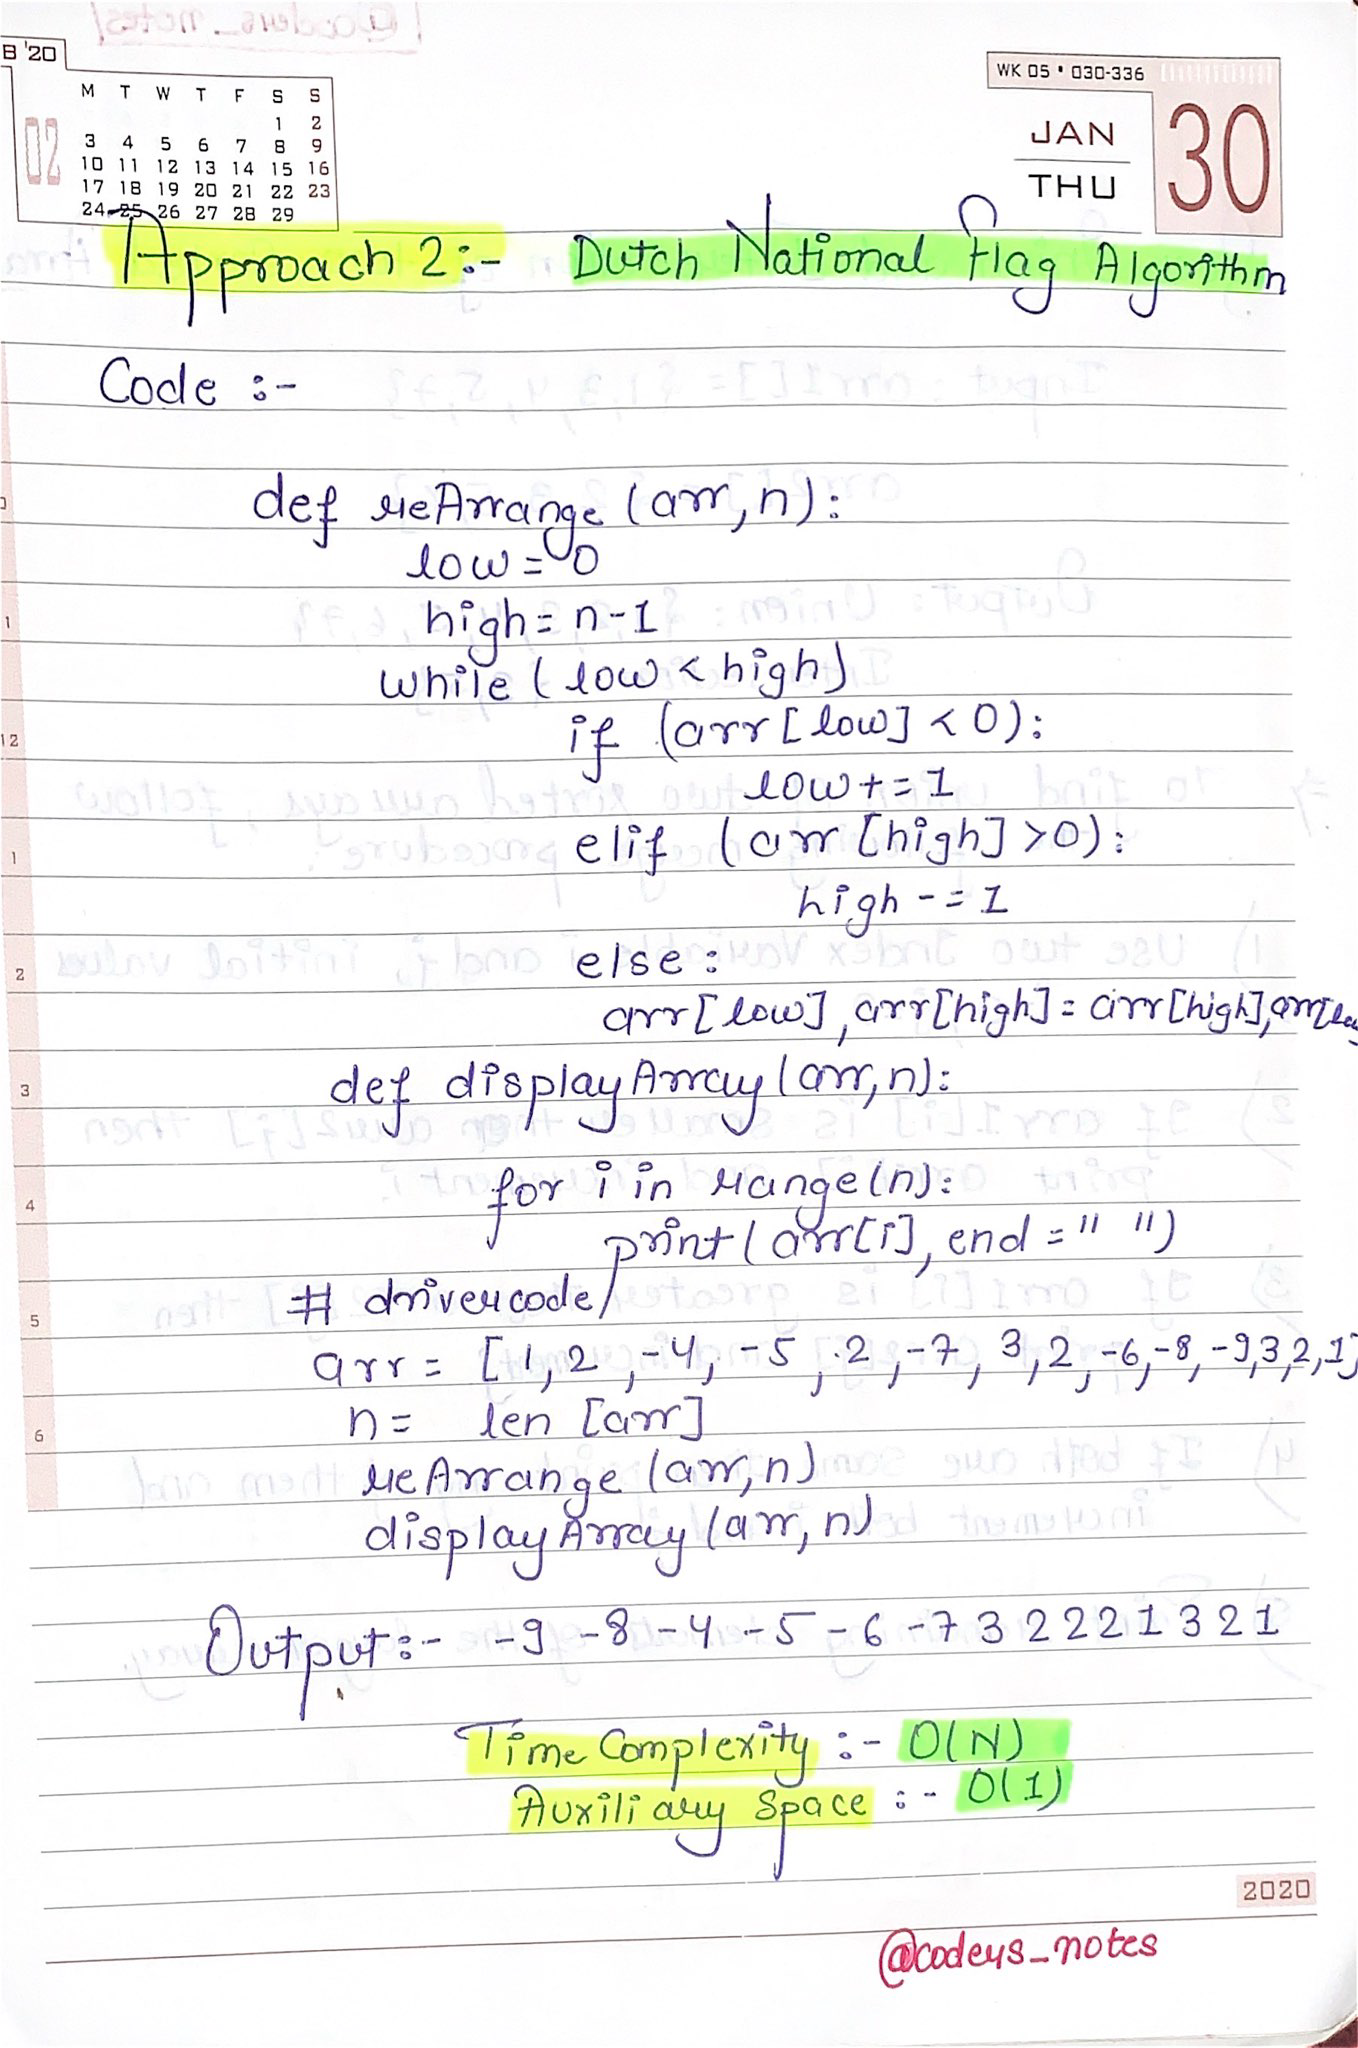 B '20
M T W T F S S
1 2
3 4 5 6 7 8 9
10 11 12 13 14 15 16
17 18 19 20 21 22 23
24 25 26 27 28 29
02
WK 05 • 030-336
JAN
THU
30
Approach 2:- Dutch National Flag Algorithm
Code :-
def reArrange (arr, n):
low = 0
high = n-1
while (low < high)
if (arr[low] < 0):
low += 1
elif (arr[high] > 0):
high -= 1
else:
arr[low], arr[high] = arr[high], arr[lo
def displayArray(arr, n):
for i in range(n):
print(arr[i], end = " ")
# driver code
arr = [1, 2, -4, -5, 2, -7, 3, 2, -6, -8, -9, 3, 2, 1]
n = len [arr]
reArrange (arr, n)
displayArray (arr, n)
Output:- -9 -8 -4 -5 -6 -7 3 2 2 2 1 3 2 1
Time Complexity :- O(N)
Auxiliary Space :- O(1)
1
12
1
2
3
4
5
6
2020
@coders_notes